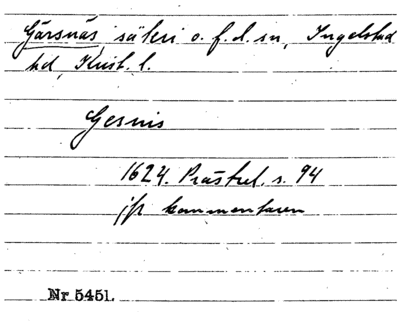 Gärsnäs, säteri o. f. d. sn, Ingelstad
hd, Krist. l.
Gesnis
1624. Prästrel. s. 94
jfr kommentaren
Nr 5451.